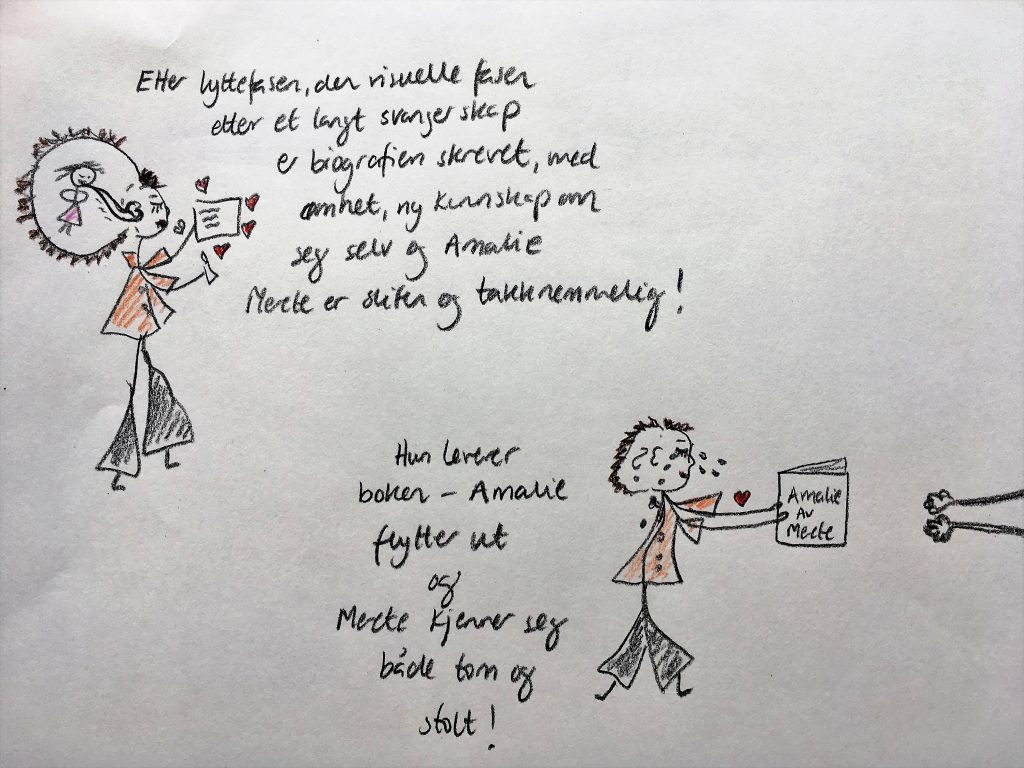 Etter lyttefasen, den visuelle fasen
etter et langt svangerskap
er biografien skrevet, med
ømhet, ny kunnskap om
seg selv og Amalie
Merete er sliten og takknemmelig!
Hun leverer
boken – Amalie
flytter ut
og
Merete kjenner seg
både tom og
stolt!
Amalie
Av
Merete